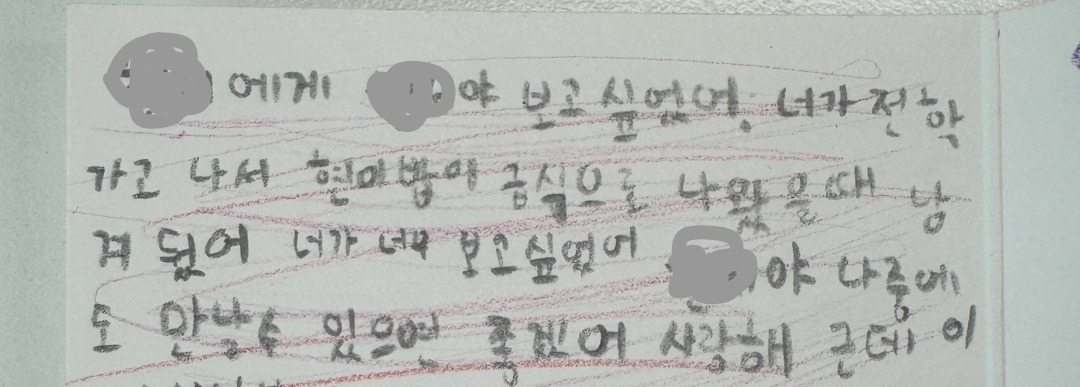 에게 야 보고싶었어. 너가 전학
가고 나서 현미밥이 급식으로 나왔을때 남
겨 뒀어 너가 너무 보고싶었어 야 나중에
도 만날수 있으면 좋겠어 사랑해 근데 이